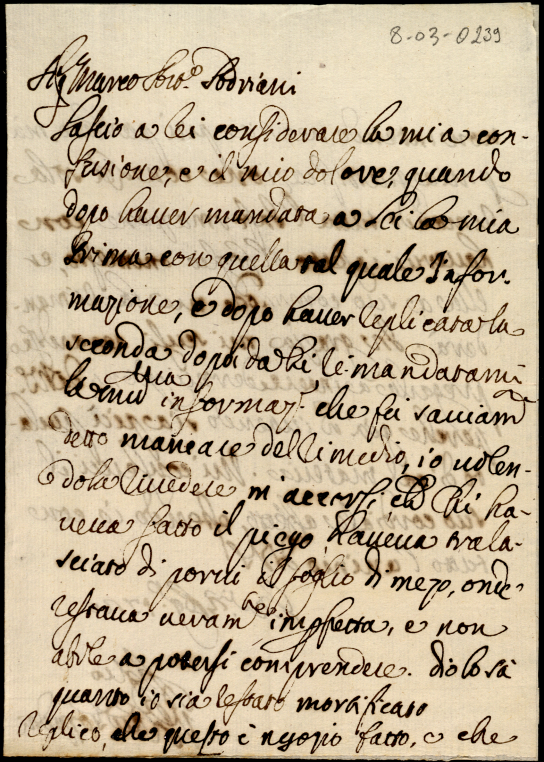 8-03-0239
Sig. Marco Podriani
Lascio a lei considerare la mia con-
fusione, e il mio dolore, quando
dopo haver mandata a Lei la mia
Prima con quella tal quale Infor-
mazione, e dopo haver replicata la
seconda
informaz.e che
detto mancare del rimedio, io volen-
dola rivedere m'accorsi, che chi ha-
veva fatto il piego, haveva trala-
sciato di porvi il foglio di mezo, onde
restava veram.te imperfetta, e non
abile a potersi comprendere. Dio lo sà
quanto io sia restato mortificato
Replico, che questo è negozio fatto, e che